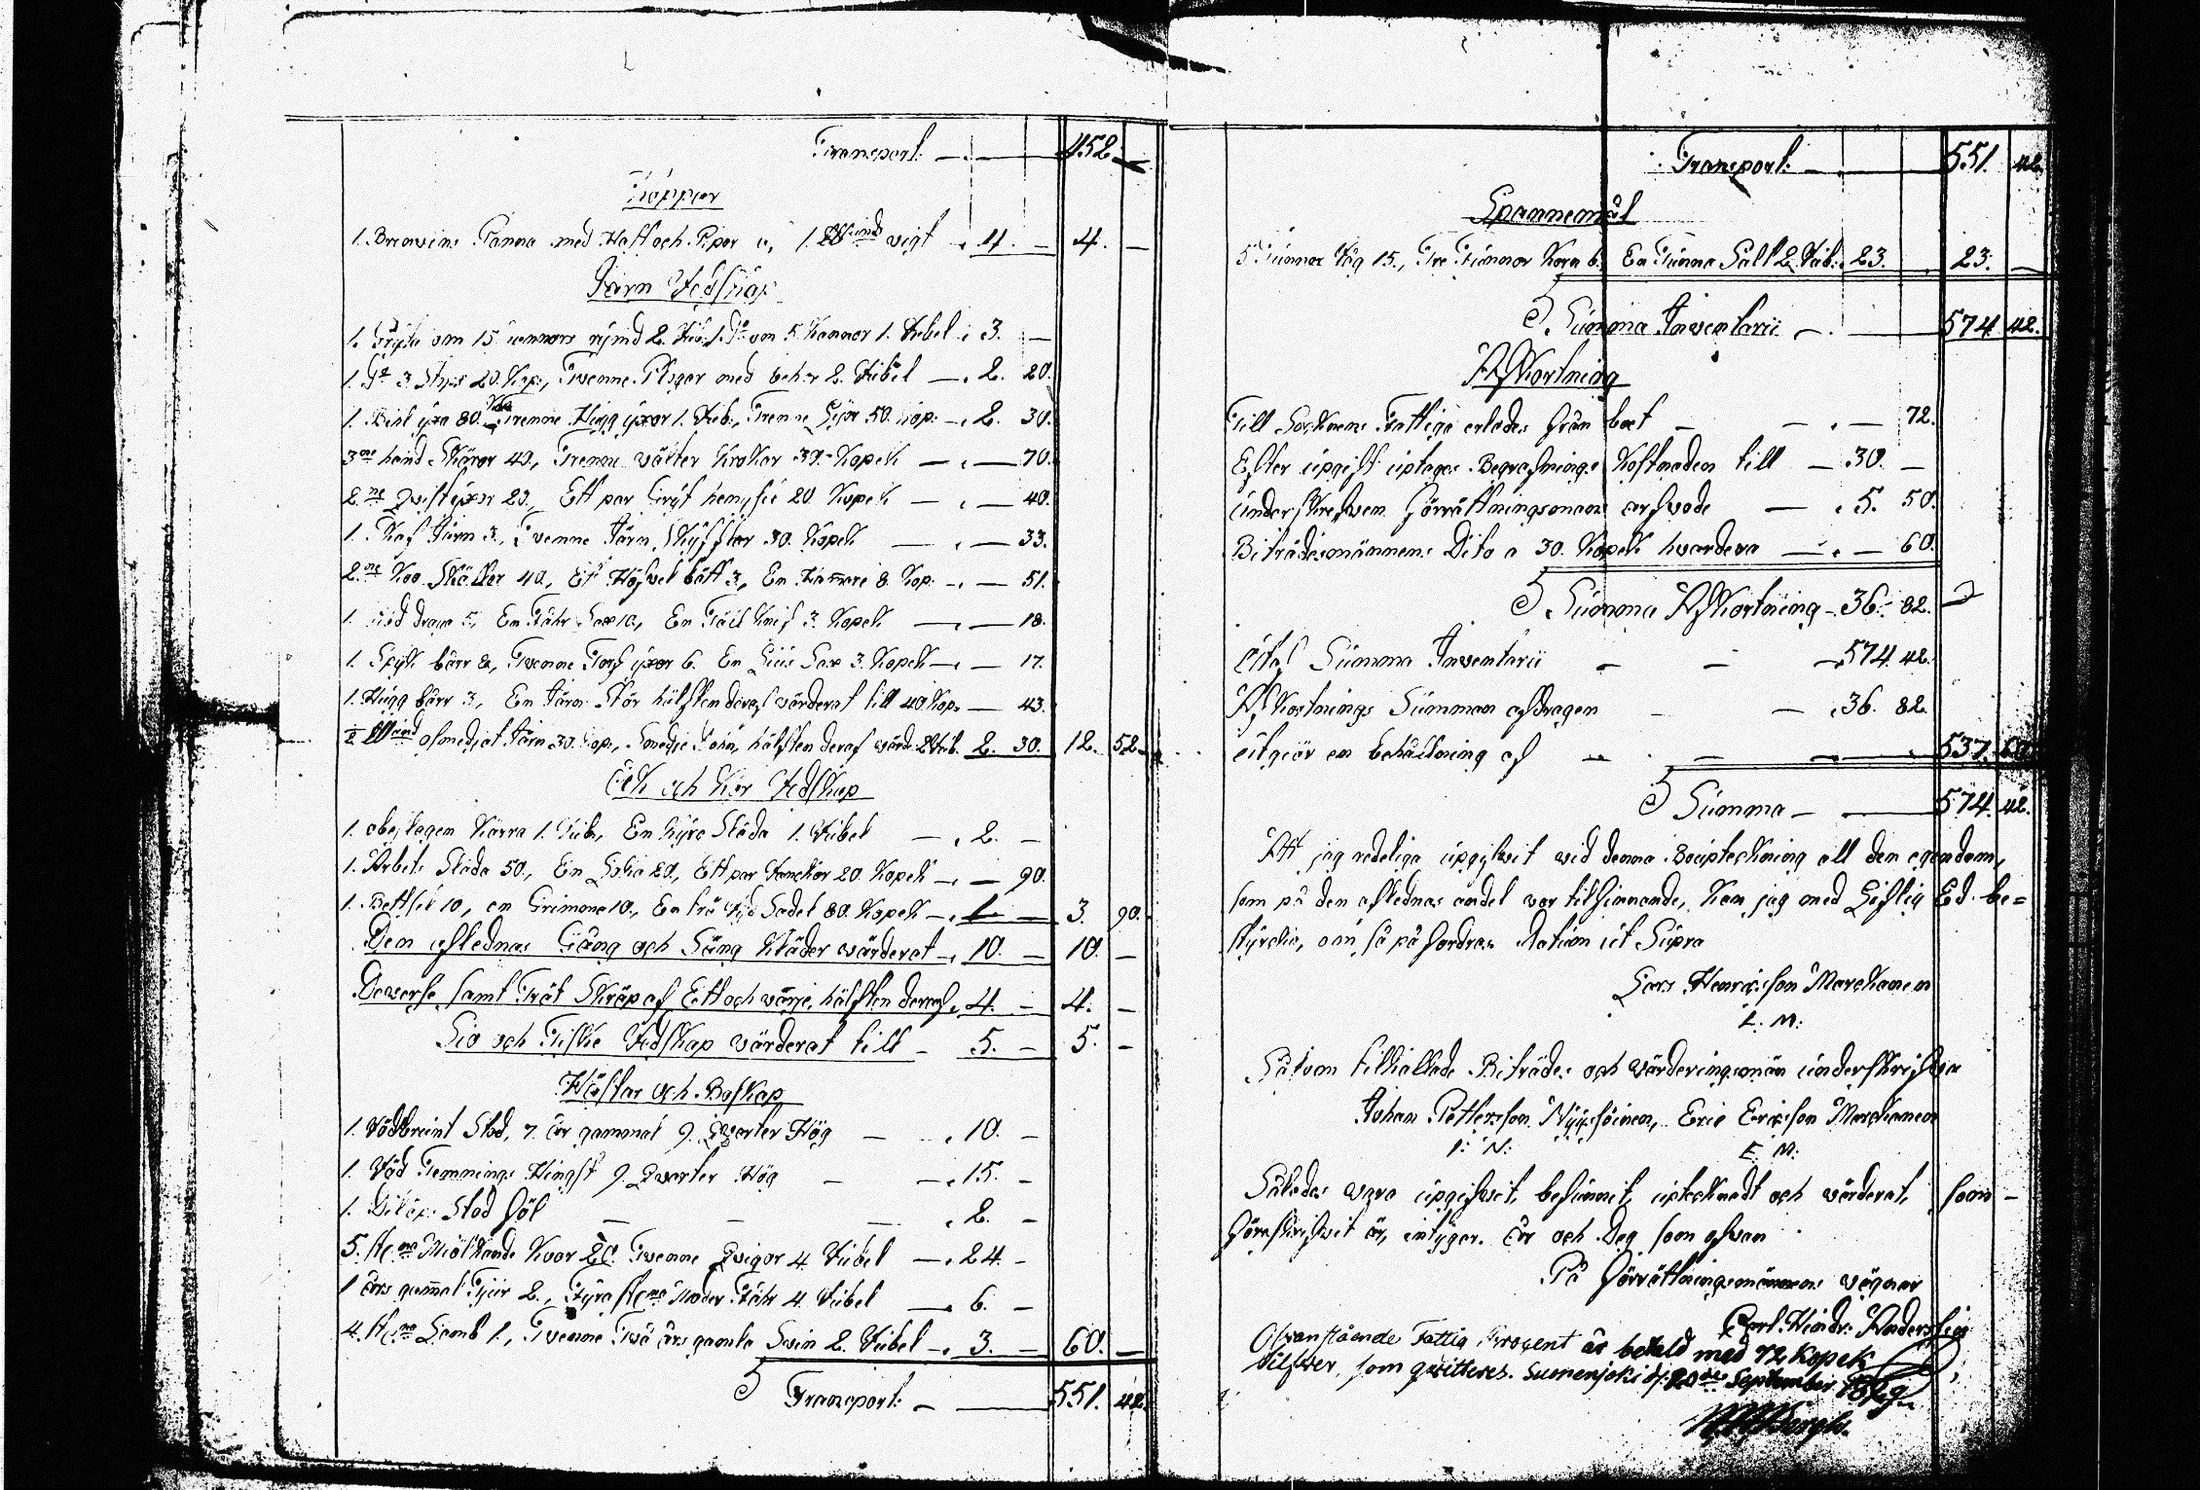 Transport: — 452. —
Koppar
1. Brenvins Panna med Hatt och Pipor a, 1. vigt 4. — 4. —
Järn Redskap
1. Gryta om 15 kannors rymd 2. Rub. 1. Do om 5 Kannor 1. Rubel 3. —
1. Do 3 Stops 20. Kop., Twenne Plogar med behör 2. Rubel — 2. 20.
1. Bil yxa 80. Kop Trenne Hugg yxor 1. Rub., Trenne Lijor 50. Kop: — 2. 30.
3ne hand Skäror 40, Trenne Krokar 30. Kopek — 70.
2ne Qvist yxor 20., Ett par 20 Kopek — 40.
1. Skaf Järn 3., Tvenne Järn Skyfflar 30. Kopek — 33.
2ne Koo Skällor 40, Ett Höfvel bätt 3, En Hammare 8 Kop. — 51.
1. 5, En Fåhr Sax 10, En Täil Knif 3. Kopek — 18.
1. Spik bårr 8, Twenne Torf yxor 6. En Liüs Sax 3. Kopek — 17.
1. Hugg bårr 3, En Järn Stör hälften deraf värderat till 40 Kop. — 43.
osmedjat Järn 30. Kop., hälften deraf värd. 2 Rub. 2. 30. 12. 52.
Åk och Kör Redskap
1. obeslagen Kärra 1. Rub., En Kyrc Släda 1. Rubel — 2. —
1. Arbets Släda 50., En 20., Ett par 20. Kopek — 90.
1. Bettsel 10, en Grimma 10., En trä Sadel 80. Kopek — 1. — 3. 90.
Den aflednas Gång och Säng Kläder värderat — 10. — 10. —
Diverse samt Trät Skräp af Ett och värje, hälften deraf 4. — 4. —
Sio och Fiske Redskap värderat till — 5. — 5. —
Hästar och Boskap
1. Rödbrunt Stod, 7. år gammal 9. Qvarter Hög — 10. —
1. Röd Hingst 9 Qvarter Hög — 15. —
1. Stod föl — 2. —
5. st.na Miölkande Koor 20. Twenne Qvigor 4 Rubel — 24. —
1 års gammal Tjur 2., Fyra st.na Moder Fåhr 4. Rubel — 6. —
4. st.na Lamb 1., Twenne Två års gamla Swin 2. Rubel — 3. — 60. —
Transport: — 551. 42.
Transport: — 551. 42.
Spannemål
5 Tunnor Råg 15., Tre Tunnor Korn 6. En Tunna Salt 2. Rub: 23. 23. —
Summa Inventarii — 574. 42.
Afkortning
Till Socknens Fattige erlades från boet — 72.
Efter upgift uptages Begrafnings Kostnaden till — 30. —
underskrefwen Förrättningsmans arfwode — 5. 50.
Biträdesmännens Dito a 30. Kopek hvardera — 60.
Summa Afkortning — 36. 82.
utaf Summa Inventarii — 574. 42.
Afkortnings Summan afdragen — 36. 82.
utgiör en behållning af — 537. 60.
Summa — 574. 42.
Att jag redeliga upgifwit vid denna Boupteckning all den egendom,
som på den aflednas andel var tilfinnande, kan jag med Liflig Ed be=
styrcka, om så på fordras Datum ut Supra
Lars Henricsson Marckanen
L: M:
Såsom tilkallade Biträdes och värderingsmän underskrifva
Johan Pettersson Nyyssöinen, Eric Ericsson Marckanen
I: N: E: M:
Således vara upgifwit, befunnit, upteknadt och värderat, som —
föreskrifwit är, intygar. År och Dag som ofwan
På Förrättningsmannens vägnar
Carl Hindr:
Ofvanstående Fattig Procent är betald med 72 Kopek
Silfver, som qwitteres. Suonenjoki d. 20de September 1849.